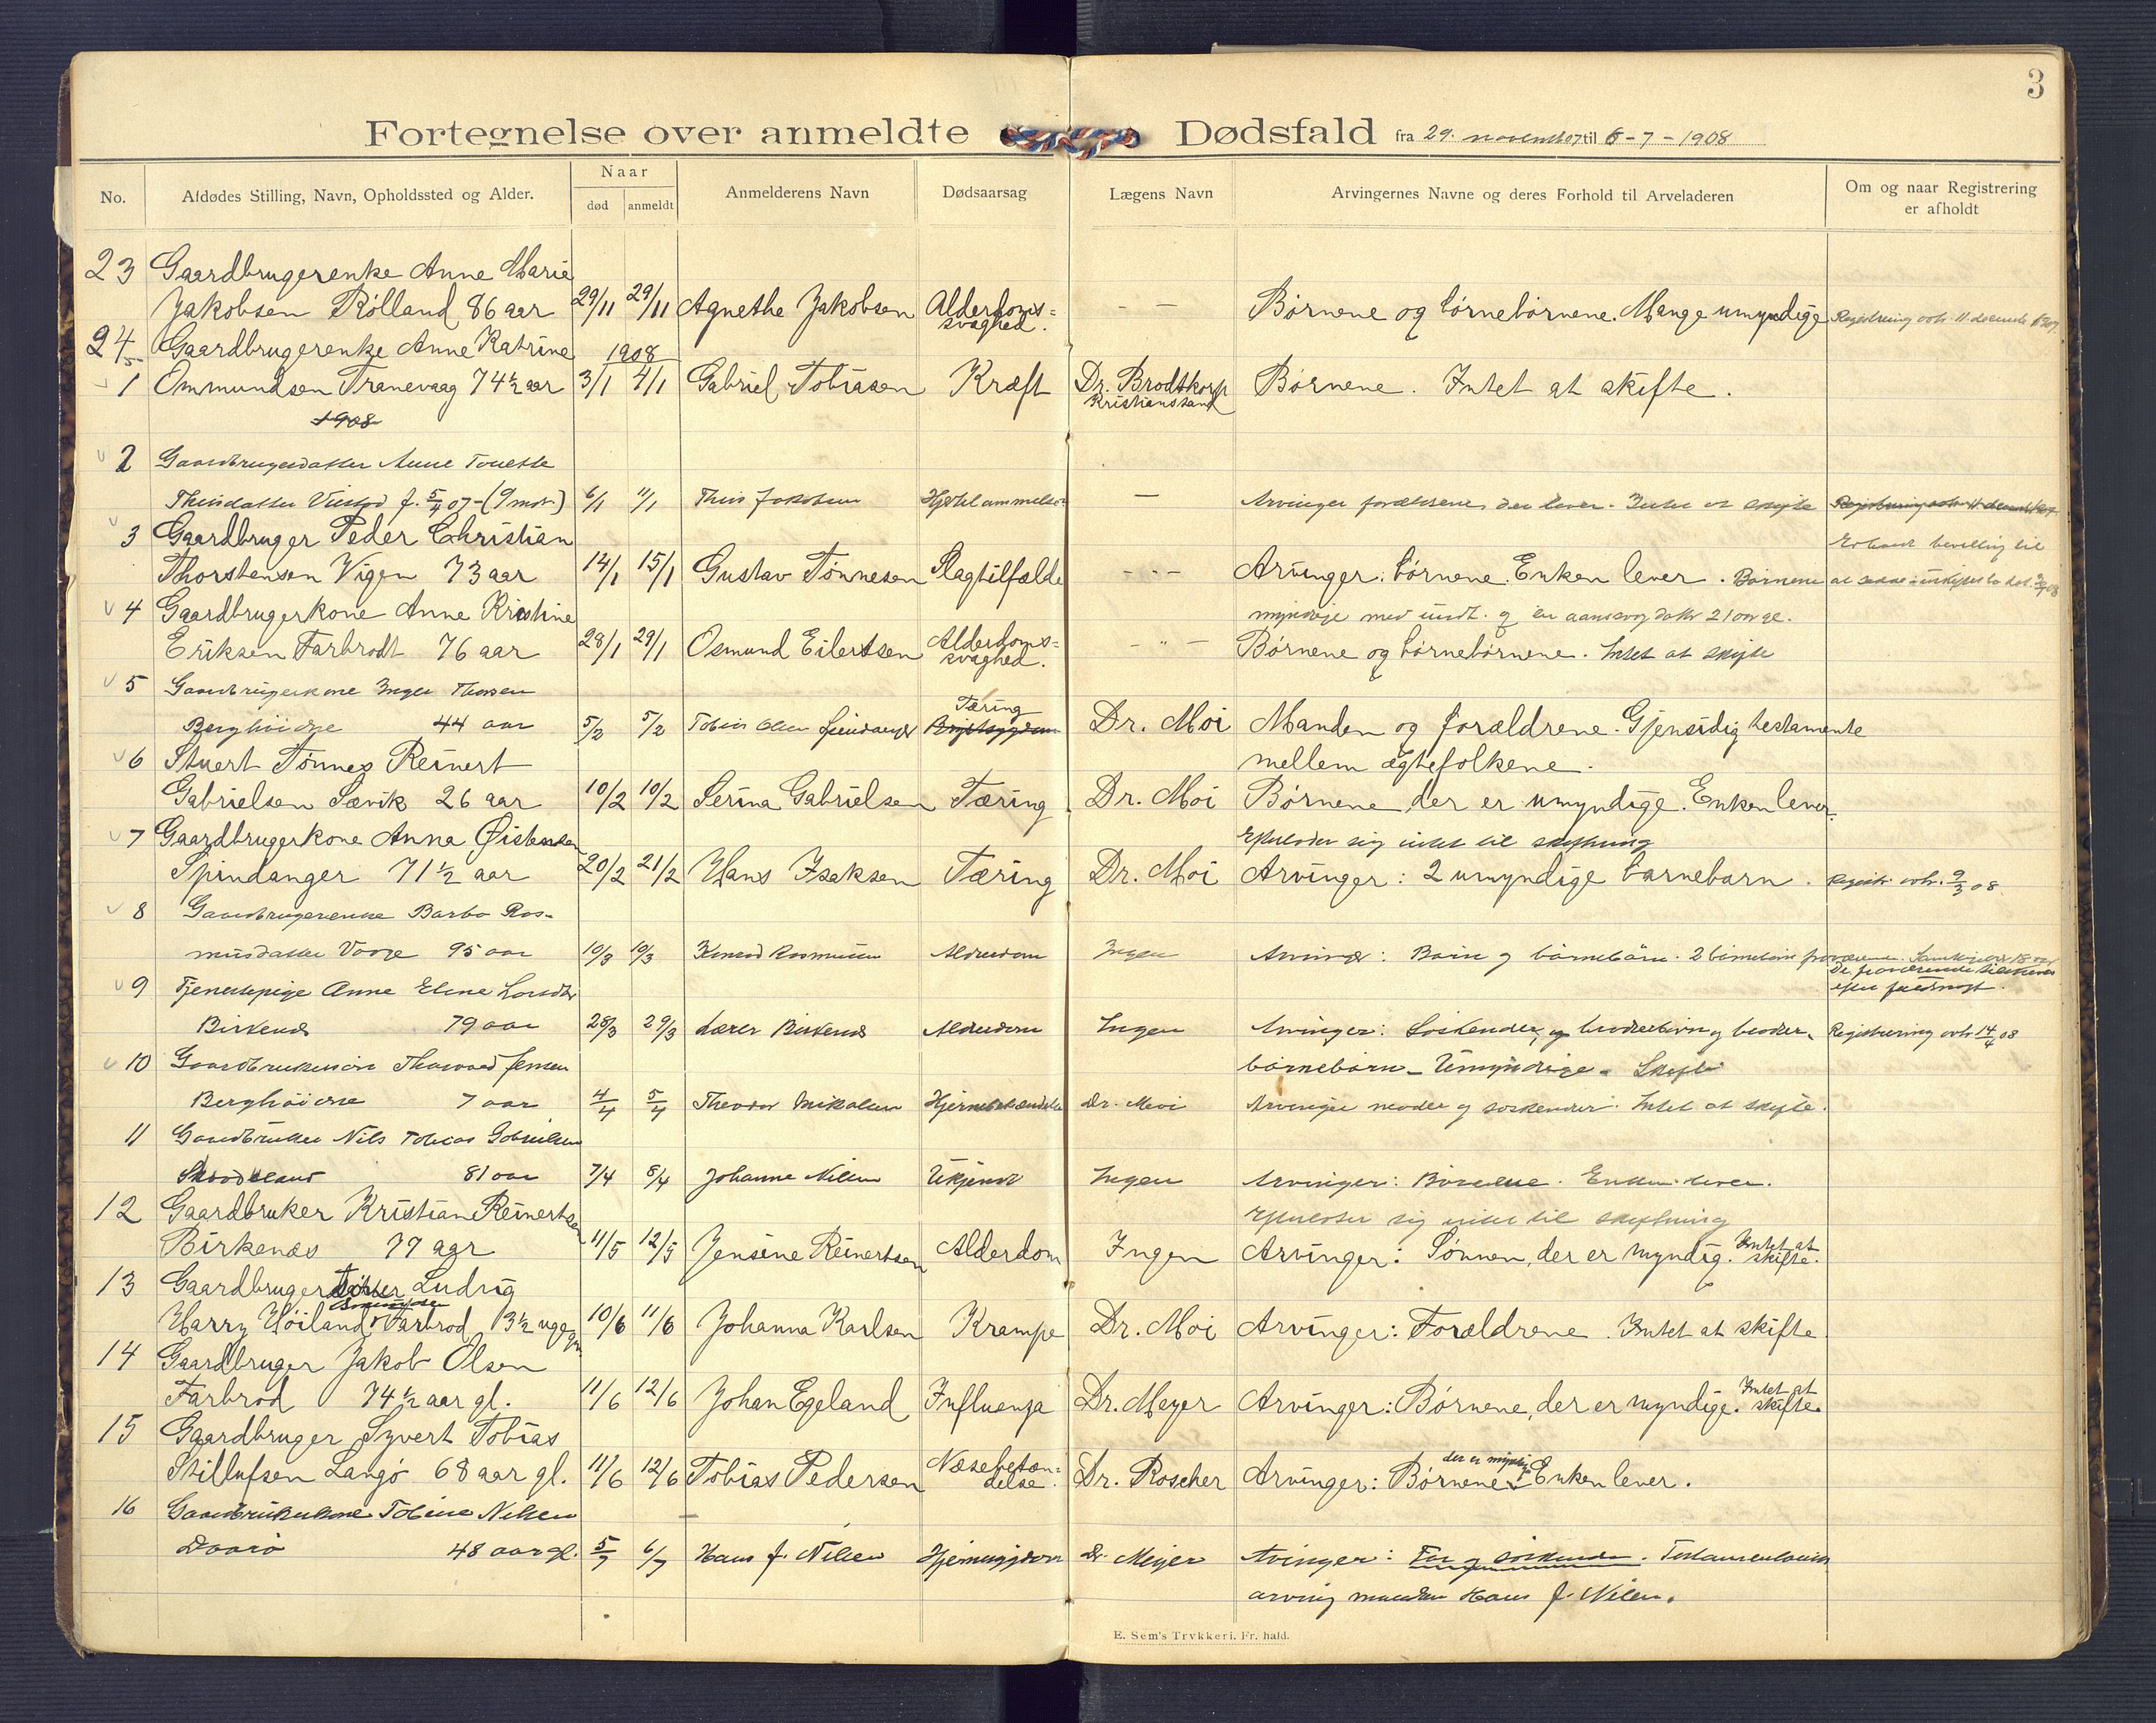 3
Fortegnelse over anmeldte Dødsfald fra 29. novemb 07 til 6-7-1908
No. Afdødes Stilling, Navn, Opholdssted og Alder. Naar død anmeldt Anmelderens Navn Dødsaarsag Lægens Navn Arvingernes Navne og deres Forhold til Arveladeren Om og naar Registrering er afholdt
23 Gaardbrugerenke Anne Marie
Jakobsen Rølland 86 aar 29/11 29/11 Agnethe Jakobsen Alderdoms= svaghed. - — Børnene og børnebørnene. Mange umyndige Registrering avh. 11 decemb 1907
24 Gaardbrugerenke Anne Katrine 1908
1 Ommundsen Tranevaag 74½ aar 3/1 4/1 Gabriel Tobiasen Kræft Dr. Brodtkorp Kristianssand Børnene. Intet at skifte.
1908
2 Gaardbrugerdatter Anne Tonette
Theisdatter f. 5/4 07 - (9 mdr.) 6/1 11/1 Theis Jakobsen — Arvinger forældrene der lever. Intet at skifte Registrering avh. 11 decemb 1907
3 Gaardbruger Peder Christian
Thorstensen Vigen 73 aar 14/1 15/1 Gustav Tønnesen Slagtilfælde - " - Arvinger: børnene. Enken lever. Børnene
bevilling til
myndige med undt. af en datter 21 aar gl.
4 Gaardbrugerkone Anne Kristine
Eriksen Farbrodt 76 aar 28/1 29/1 Osmund Eilertsen Alderdoms= svaghed. - " - Børnene og børnebørnene. Intet at skifte
5 Gaardbrugerkone Inger Thorsen
Berghøidge 44 aar 5/2 5/2 Tobias Olsen Spindanger Tæring Dr. Moi Manden og forældrene. Gjensidig testamente
mellem ægtefolkene.
6 Stuert Tønnes Reinert
Gabrielsen Sævik 26 aar 10/2 10/2 Serina Gabrielsen Tæring Dr. Moi Børnene der er umyndige. Enken lever.
Efterlader sig intet til skiftning
7 Gaardbrugerkone Anna Øistensen
Spindanger 71½ aar 20/2 21/2 Hans Isaksen Tæring Dr. Moi Arvinger: 2 umyndige barnebarn. Registr. avh. 9/3 08
8 Gaardbrugerenke Barbo Ras-
musdatter Vaage 95 aar 10/3 10/3 Konrad Rasmussen Alderdom Ingen Arvinger: Børn og børnebørn. 2 børnebørn
9 Tjenestepige Anne Eline Larsdtr
Birkenes 79 aar 28/3 29/3 Lars Birkenes Alderdom Ingen Arvinger: Søskende, og broderbørn og broder- Registrering avh 14/4 08
børnebørn - Umyndige. Skifte
10 Gaardbrukersøn Thorvald Jensen
Berghøidge 7 aar 4/4 5/4 Theodor Mikalsen Hjernebetændelse Dr. Moi Arvinger moder og søskender. Intet at skifte.
11 Gaardbruker Nils Tobias Gabrielsen
81 aar 7/4 8/4 Johanne Nilsen Ukjendt Ingen Arvinger: Børnene. Enken lever.
Efterlader sig intet til skiftning
12 Gaardbruker Kristian Reinertsen
Birkenæs 79 aar 11/5 12/5 Jensine Reinertsen Alderdom Ingen Arvinger: Sønnen, der er myndig. Intet at skifte.
13 Gaardbruger Ludvig
Harry Høiland Farbrod 13½ uge gl. 10/6 11/6 Johanna Karlsen Krampe Dr. Moi Arvinger: Forældrene. Intet at skifte
14 Gaardbruger Jakob Olsen
Farbrod 74½ aar gl. 11/6 12/6 Johan Egeland Influenza Dr. Meyer Arvinger: Børnene, der er myndige. Intet at skifte.
15 Gaardbruger Syvert Tobias
Stillufsen Langø 68 aar gl. 11/6 12/6 Tobias Pedersen Næsebetæn= delse. Dr. Roscher Arvinger: Børnene der er myndige Enken lever.
16 Gaardbrukerkone Tobine Nilsen
48 aar gl. 5/7 6/7 Hans J. Nilsen Dr. Meijer Arvinger: Far og søskende.
arving manden Hans J. Nilsen.
E. Sem's Trykkeri, Fr. hald.